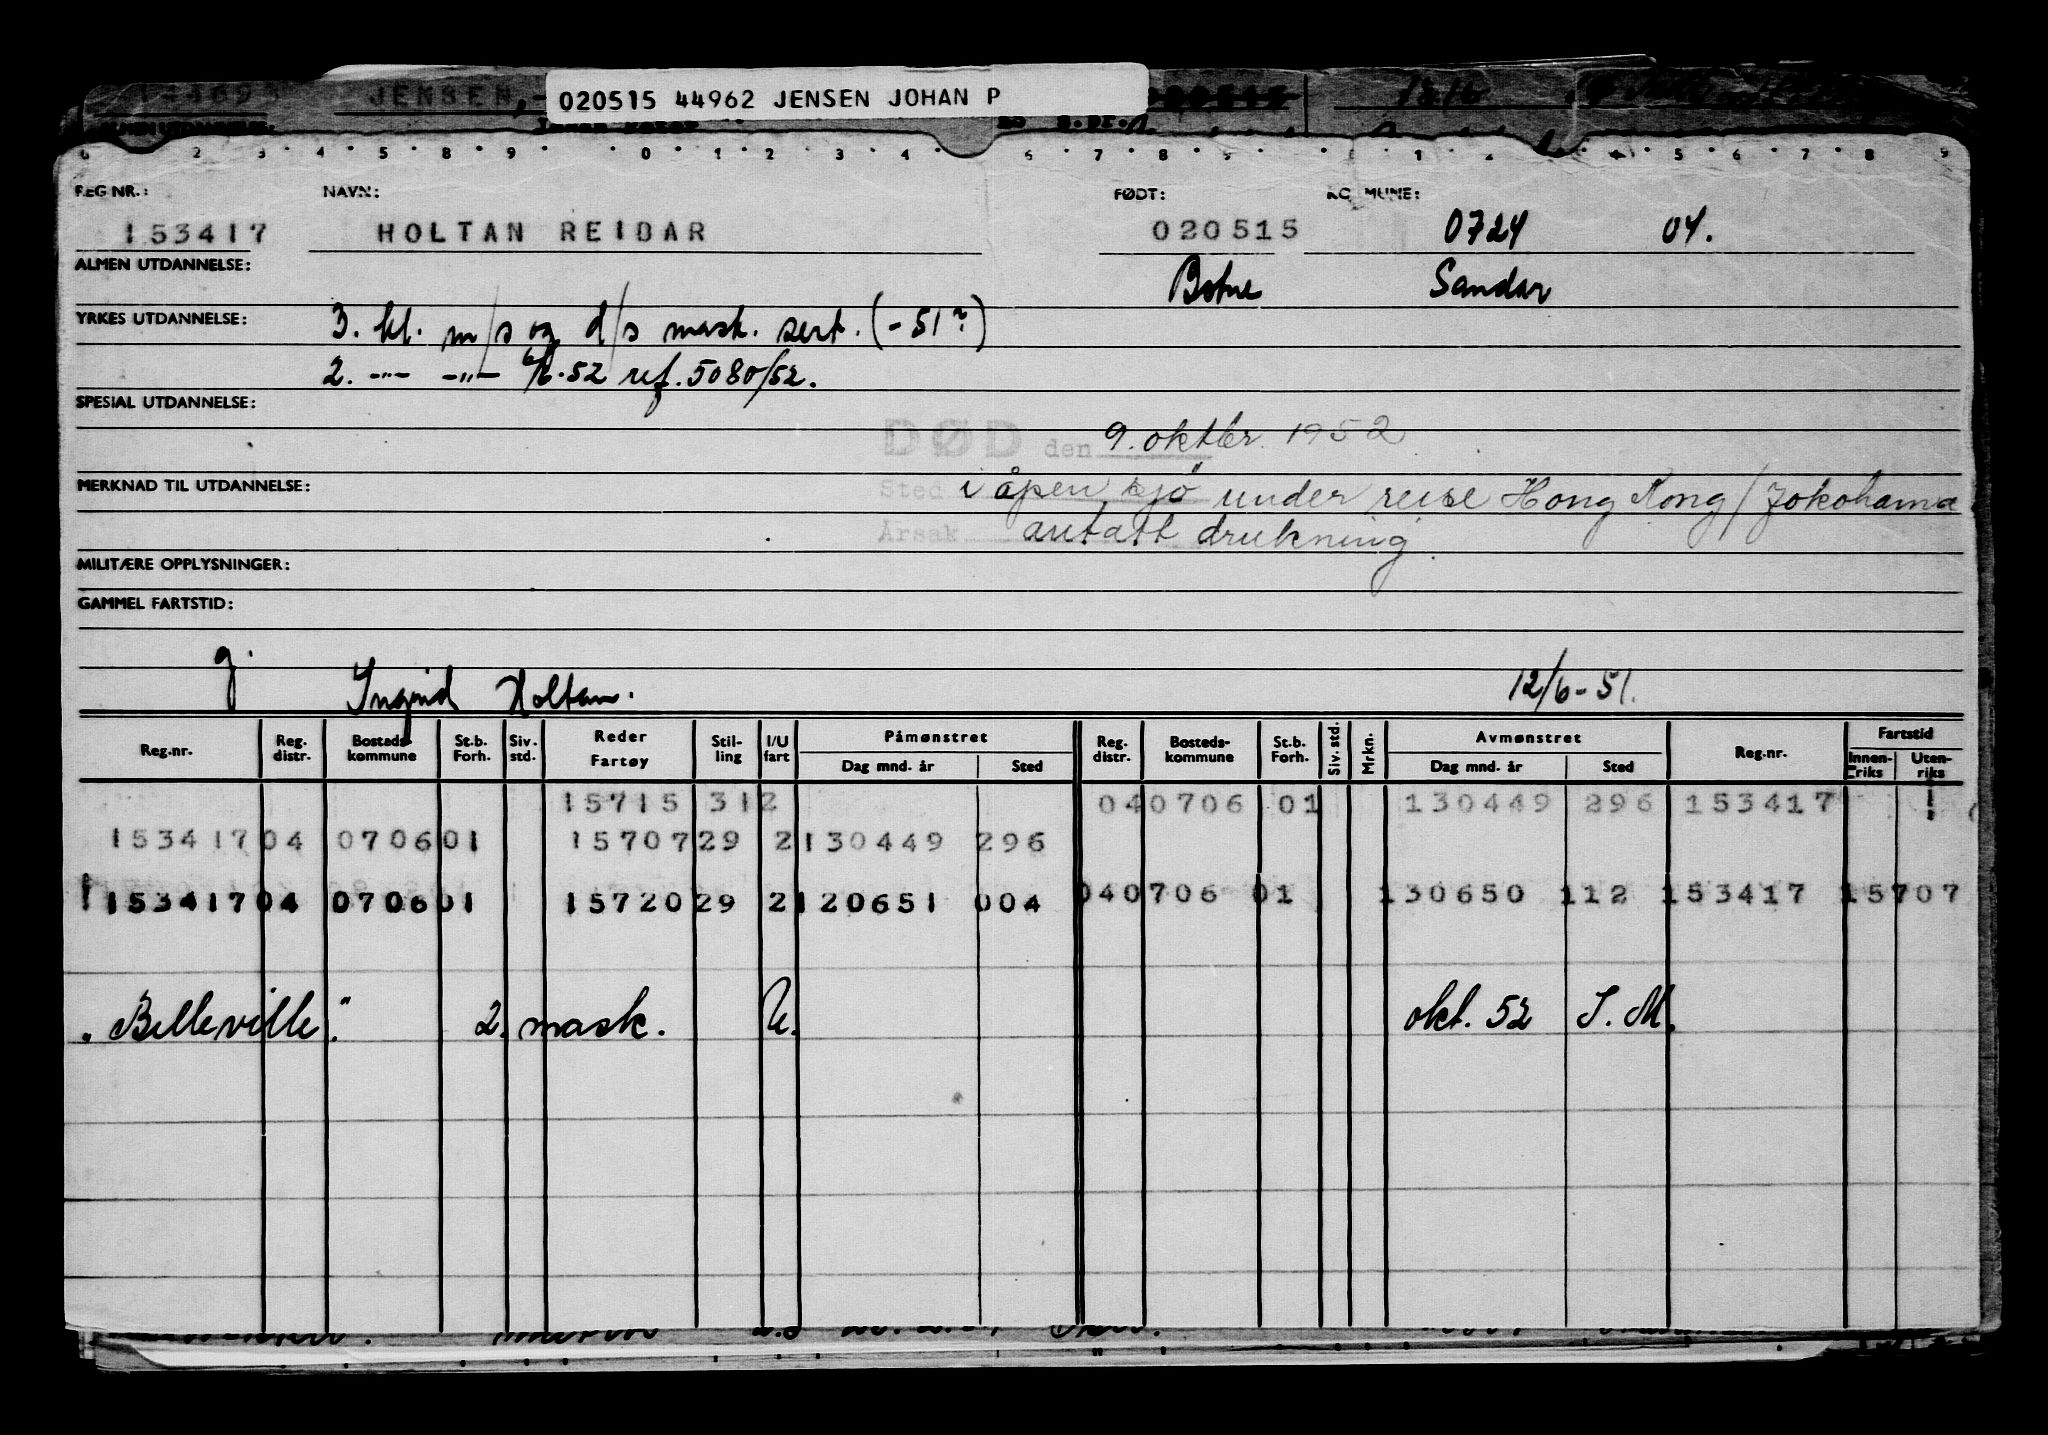 JENSEN,
020515 44962 JENSEN JOHAN P
REG NR.: NAVN: FØDT: KOMMUNE:
153417 HOLTAN REIDAR 020515 0724 04.
ALMEN UTDANNELSE: Botne Sandar
YRKES UTDANNELSE: 3. kl. m/s og d/s mask. sert. (-51?)
2. -"- -"- 6/6.52 ref. 5080/52.
SPESIAL UTDANNELSE:
DØD den 9. oktbr. 1952
MERKNAD TIL UTDANNELSE: Sted i åpen sjö under reise Hong Kong/Jokohama
Årsak antatt drukning.
MILITÆRE OPPLYSNINGER:
GAMMEL FARTSTID:
g. Ingrid Holtan. 12/6-51.
Reg.nr. Reg. distr. Bosteds-kommune St.b. Forh. Siv. std. Reder Fartøy Stil-ling I/U fart Påmønstret Dag mnd. år Sted Reg. distr. Bosteds-kommune St.b. Forh. Siv. std. Mrkn. Avmønstret Dag mnd. år Sted Reg.nr. Fartstid Innen-riks Uten-riks
15715 312 040706 01 130449 296 153417
153417 04 0706 01 15707 29 2 130449 296
153417 04 0706 01 15720 29 2 120651 004 040706 01 130650 112 153417 15707
"Belleville". 2. mask. U. okt. 52 S.M.